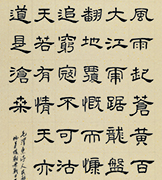 風雨起蒼黃百
大江虎踞龍盤
翻地覆慨而慷
追窮寇不可沽
天若有情天亦
道是滄桑